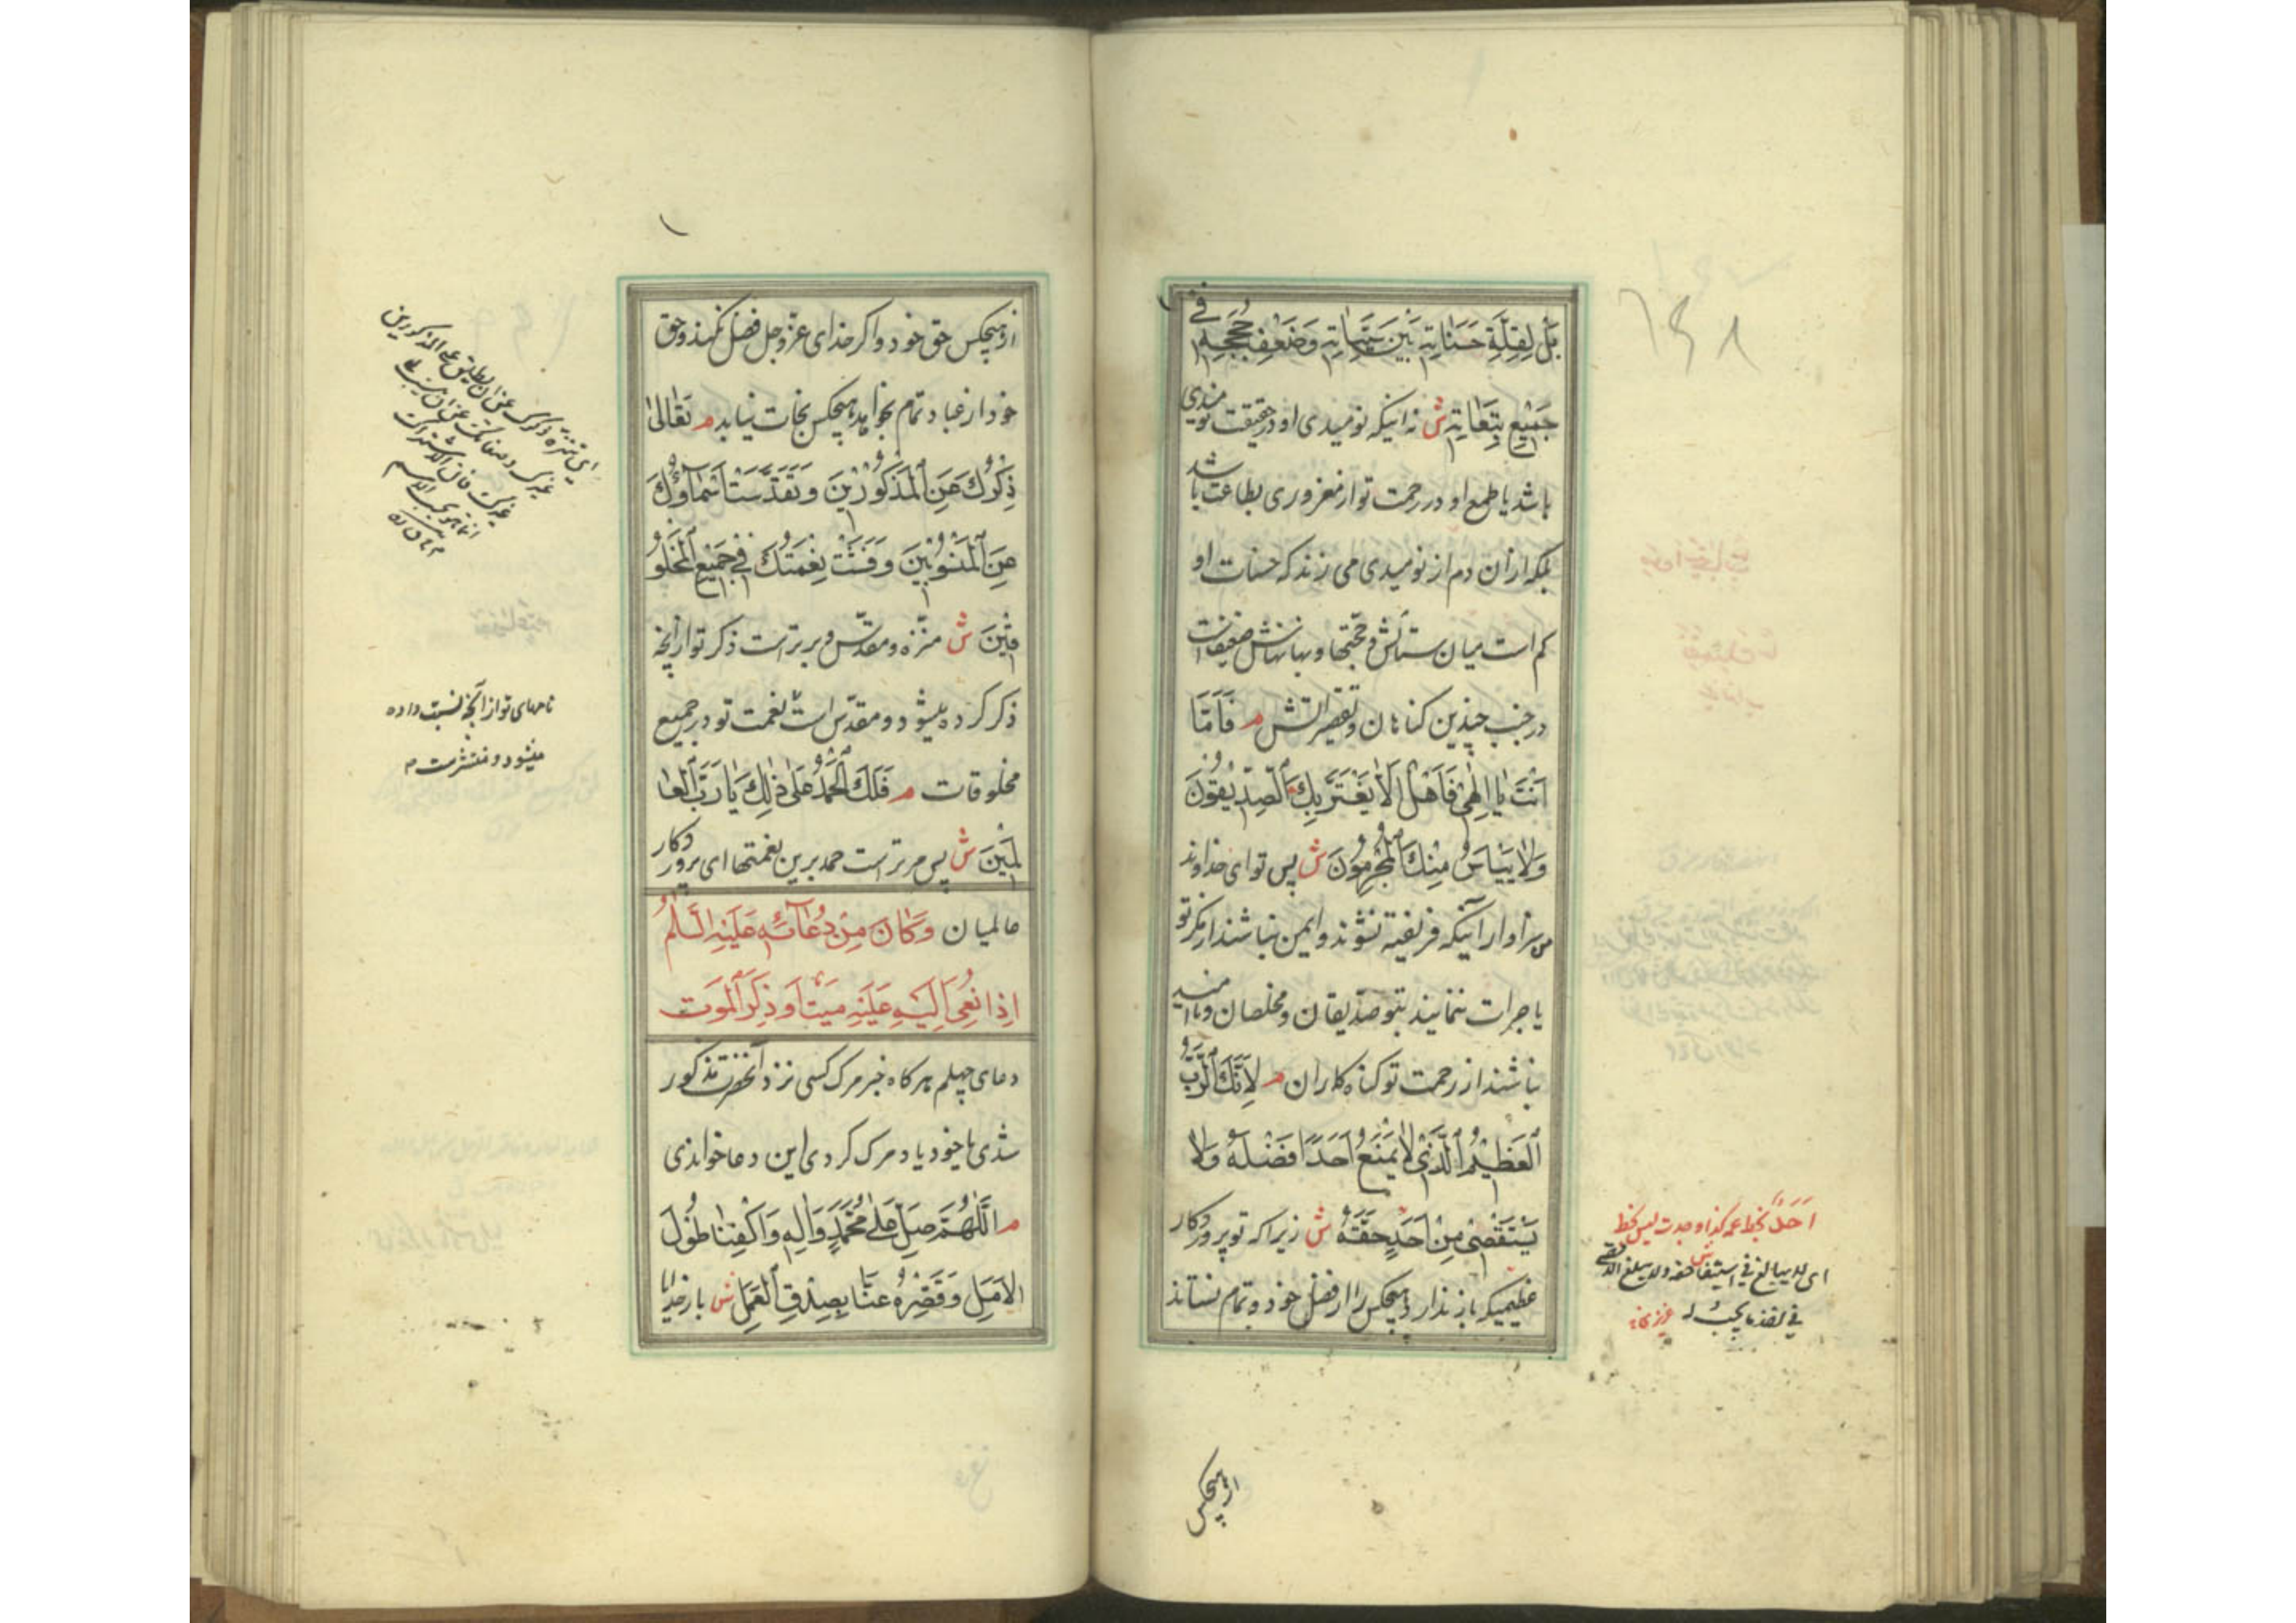 بَلْ لِقِلَّةِ حَسَنَاتِهِ بَيْنَ سَيِّئَاتِهِ وَضَعْفِ حُجَجِهِ فِي
جَمِيعِ تَبِعَاتِهِ ش نه اینکه نومیدی او در حقیقت نومیدی
باشد یا طمع او در رحمت تو از مغروری بطاعت باشد
بلکه از آن دم از نومیدی می زند که حسنات او
کم است میان سیئاتش و حجتها و بهانهاش ضعیفست
در جنب چندین کناهان و تقصیراتش م فَاَمَّا
اَنْتَ يَا اِلٰهِي فَاَهْلٌ اَلَّا يَغْتَرَّ بِكَ الصِّدِّيقُونَ
وَلَا يَيْاَسَ مِنْكَ الْمُجْرِمُونَ ش پس تو ای خداوند
من سزاوار آنیکه فریفته نشوند و ایمن نباشند از مکر تو
یا جرات ننمایند بتو صدیقان و مخلصان و ناامید
نباشند از رحمت تو کناه کاران م لِاَنَّكَ الرَّبُّ
الْعَظِيمُ الَّذِي لَا يَمْنَعُ اَحَدًا فَضْلَهُ وَلَا
يَسْتَقْصِي مِنْ اَحَدٍ حَقَّهُ ش زیرا که تو پروردکار
عظیمیکه باز نداری هیچکس را از فضل خود و بتمام نستاند
ازهیچکس
۱۶۸
اَحَدٌ بخط
ای لا یبالغ فی استیفا حقه
ازهیچکس حق خود و اکر خدای عزّ و جل فضل نکند و حق
خود از عباد تمام بخواهد هیچکس نجات نیابد م تَعَالٰى
ذِكْرُكَ عَنِ الْمَذْكُورِينَ وَتَقَدَّسَتْ اَسْمَاؤُكَ
عَنِ الْمَنْسُوبِينَ وَفَشَتْ نِعْمَتُكَ فِي جَمِيعِ الْمَخْلُو
قِينَ ش منزّه و مقدّس و برتر است ذکر تو از آنچه
ذکر کرده میشود و مقدّس است نعمت تو در جمیع
مخلوقات م فَلَكَ الْحَمْدُ عَلٰى ذٰلِكَ يَا رَبَّ الْعَا
لَمِينَ ش پس مر تراست حمد برین نعمتها ای پروردکار
عالمیان وَكَانَ مِنْ دُعَائِهِ عَلَيْهِ السَّلَمُ
اِذَا نُعِيَ اِلَيْهِ عَلَيْهِ مَيِّتٌ اَوْ ذَكَرَ الْمَوْتَ
دعای چهلم هر کاه خبر مرک کسی نزد آنحضرت مذکور
شدی یا خود یاد مرک کردی این دعا خواندی
م اَللّٰهُمَّ صَلِّ عَلٰى مُحَمَّدٍ وَاٰلِهِ وَاكْفِنَا طُولَ
الْاَمَلِ وَقَصِّرْهُ عَنَّا بِصِدْقِ الْعَمَلِ ش بار خدایا
نامهای تو از آنچه نسبت داده
میشود و منتشرست م